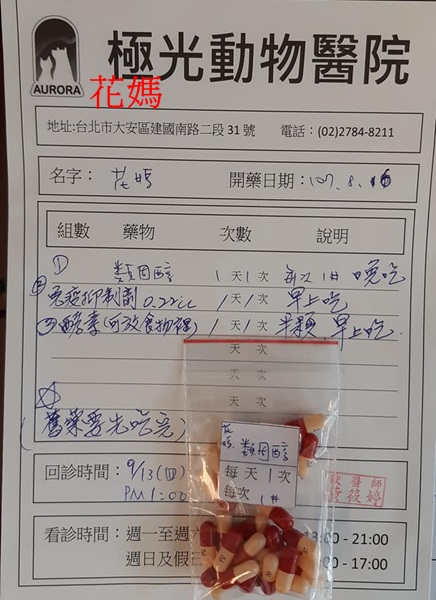 極光動物醫院
AURORA
花媽
地址:台北市大安區建國南路二段31號 電話：(02)2784-8211
名字： 花媽 開藥日期：107.8.16
組數 藥物 次數 說明
① 類固醇 1天1次 每次1# 晚吃
② 免疫抑制劑 0.22cc 1天1次 早上吃
③ 酵素(可放食物裡) 1天1次 半顆 早上吃
天 次
天
天
☆
(舊藥要先吃完)
花媽 類固醇
每天1次
每次 1#
回診時間： 9/13(四)
PM 1:00
醫師
筱婷
看診時間：週一至週 :00 - 21:00
週日及假 :00 - 17:00